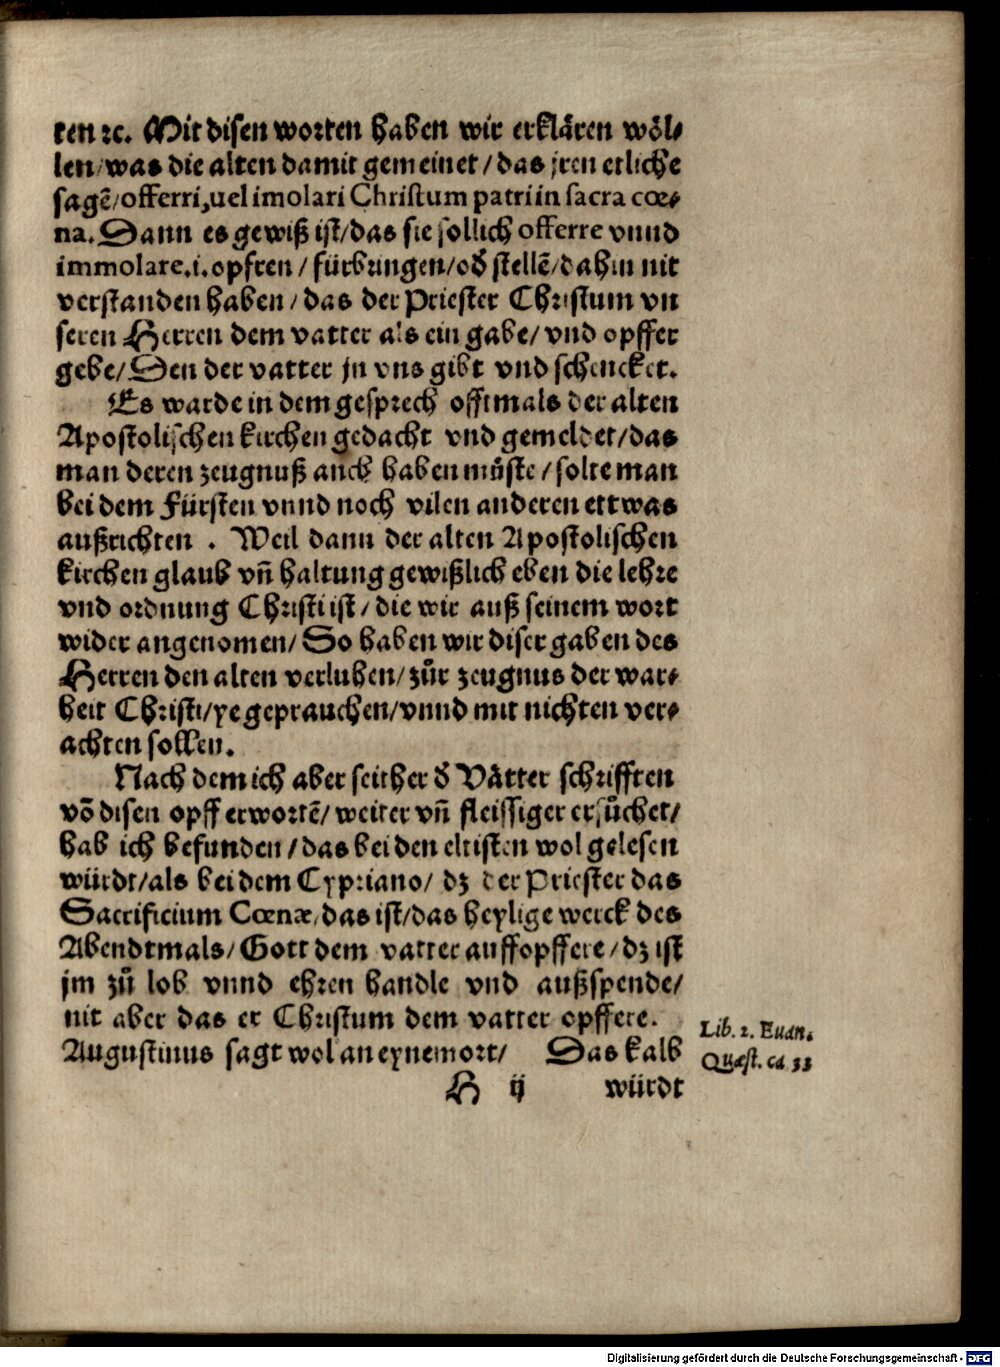 ten ꝛc. Mit disen worten haben wir erklären wöl⸗
len/was die alten damit gemeinet/das jren etliche
sagē/offerri, uel imolari Christum patri in sacra cœ⸗
na. Dann es gewiß ist/das sie sollich offerre vnnd
immolare.i.opfren/fürbringen/od̄ stellē/dahin nit
verstanden haben/das der Priester Christum vn
seren Herren dem vatter als ein gabe/vnd opffer
gebe/Den der vatter jn vns gibt vnd schencket.
Es warde in dem gesprech offtmals der alten
Apostolischen kirchen gedacht vnd gemeldet/das
man deren zeugnuß auch haben müste/solte man
bei dem Fürsten vnnd noch vilen anderen ettwas
außrichten . Weil dann der alten Apostolischen
kirchen glaub vn̄ haltung gewißlich eben die lehre
vnd ordnung Christi ist/die wir auß seinem wort
wider angenomen/So haben wir diser gaben des
Herren den alten verluhen/zůr zeugnus der war⸗
heit Christi/ye geprauchen/vnnd mit nichten ver⸗
achten sollen.
Nach dem ich aber seither d̄ Vätter schrifften
vō disen opfferwortē/weiter vn̄ fleissiger ersůchet/
hab ich befunden/das bei den eltisten wol gelesen
würdt/als bei dem Cypriano/dz der Priester das
Sacrificium Cœnæ,das ist/das heylige werck des
Abendtmals/Gott dem vatter auffopffere/dz ist
jm zů lob vnnd ehren handle vnd außspende/
nit aber das er Christum dem vatter opffere.
Augustinus sagt wol an eynem ort/ Das kalb
Lib. 2. Euan.
Quæst. ca 33
H ij würdt
Digitalisierung gefördert durch die Deutsche Forschungsgemeinschaft - DFG